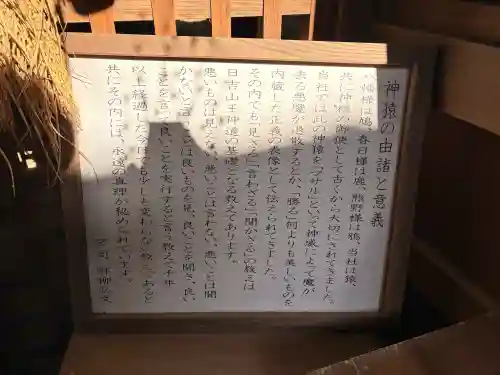 神猿の由諸と意義
八幡様は鳩、春日様は鹿、熊野様は鴉、当社は猿、
共に神様の御使として古くから大切にされてきました。
当社では此の神猿を「マサル」といって神威によって魔が
去る悪魔が退散するとか、「勝る」何よりも美しいものを
内蔵した正義の表像として伝えられてきました。
その内でも「見ざる」「言わざる」「聞かざる」の教えは
日吉山王神道の基礎となる教えであります。
悪いものは見えない、悪いことは言わない、悪いことは聞
かないと言うことは良いものを見、良いことを聞き、良い
ことを言って良いことを実行すると言う教えで千年
以上経過した今日でも少しも変わらない教えであると
共にその内には、永遠の真理が秘められています。
宮司